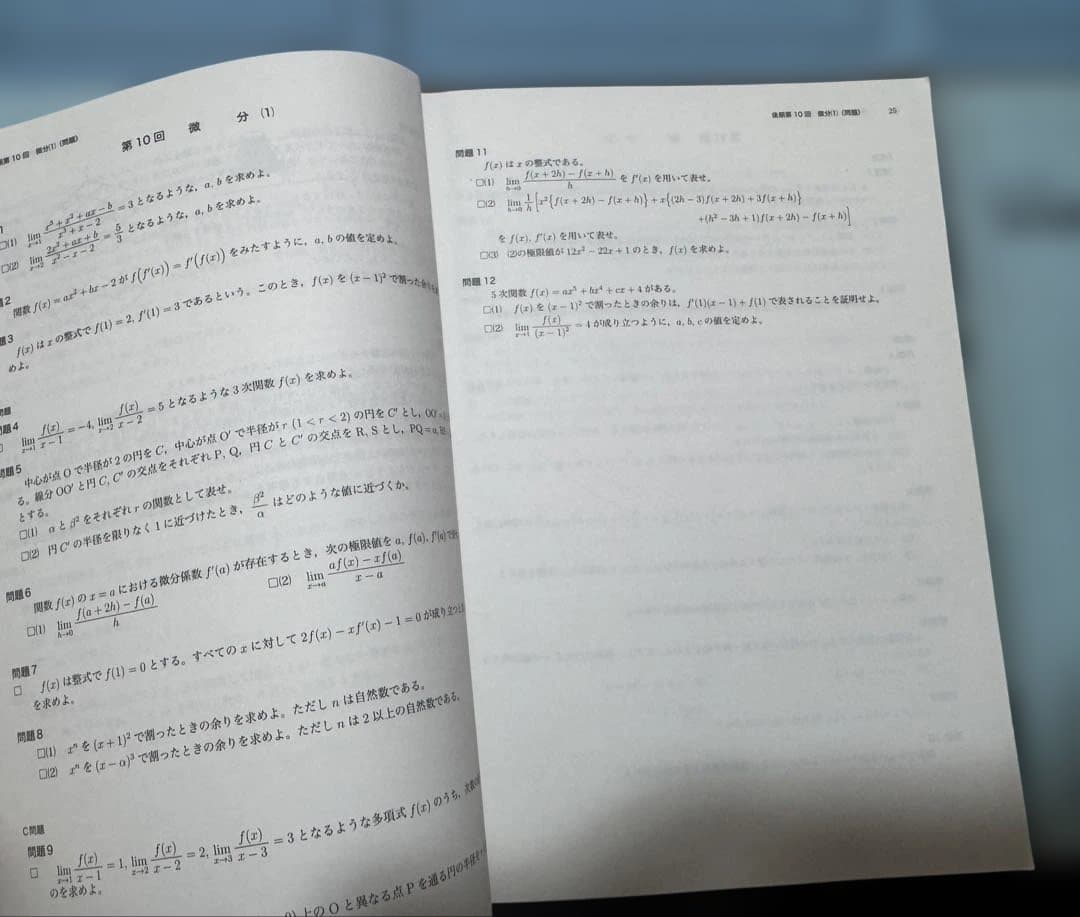 第10回 微分(1) (問題)
第10回 微 分 (1)
□(1) lim_{x→1} (x³+x²+ax-b)/(x³+x-2) = 3 となるような，a, b を求めよ。
□(2) lim_{x→2} (2x²+ax+b)/(x²-x-2) = 5/3 となるような，a, b を求めよ。
関数 f(x)=ax²+bx-2 が f(f′(x))=f′(f(x)) をみたすように，a, b の値を定めよ。
f(x) は x の整式で f(1)=2, f′(1)=3 であるという。このとき，f(x) を (x-1)² で割った余りを
めよ。
問題4
lim_{x→1} f(x)/(x-1) = -4, lim_{x→2} f(x)/(x-2) = 5 となるような3次関数 f(x) を求めよ。
問題5
中心が点 O で半径が2の円を C，中心が点 O′ で半径が r (1<r<2) の円を C′ とし，OO′
る。線分 OO′ と円 C, C′ の交点をそれぞれ P, Q，円 C と C′ の交点を R, S とし，PQ=α,
とする。
□(1) α と β² をそれぞれ r の関数として表せ。
□(2) 円 C′ の半径を限りなく1に近づけたとき，β²/α はどのような値に近づくか。
問題6
関数 f(x) の x=a における微分係数 f′(a) が存在するとき，次の極限値を a, f(a), f′(a)
□(1) lim_{h→0} (f(a+2h)-f(a))/h □(2) lim_{x→a} (af(x)-xf(a))/(x-a)
問題7
□ f(x) は整式で f(1)=0 とする。すべての x に対して 2f(x)-xf′(x)-1=0 が成り立つ
を求めよ。
問題8
□(1) xⁿ を (x+1)² で割ったときの余りを求めよ。ただし n は自然数である。
□(2) xⁿ を (x-α)³ で割ったときの余りを求めよ。ただし n は2以上の自然数である。
C問題
問題9
□ lim_{x→1} f(x)/(x-1) = 1, lim_{x→2} f(x)/(x-2) = 2, lim_{x→3} f(x)/(x-3) = 3 となるような多項式 f(x) のうち，次数の
のを求めよ。
上の O と異なる点 P を通る円の半径を
後期第10回 微分(1) (問題) 25
問題11
f(x) は x の整式である。
□(1) lim_{h→0} (f(x+2h)-f(x+h))/h を f′(x) を用いて表せ。
□(2) lim_{h→0} 1/h [x²{f(x+2h)-f(x+h)}+x{(2h-3)f(x+2h)+3f(x+h)}
+(h²-3h+1)f(x+2h)-f(x+h)]
を f(x), f′(x) を用いて表せ。
□(3) (2)の極限値が 12x²-22x+1 のとき，f(x) を求めよ。
問題12
5次関数 f(x)=ax⁵+bx⁴+cx+4 がある。
□(1) f(x) を (x-1)² で割ったときの余りは，f′(1)(x-1)+f(1) で表されることを証明せよ。
□(2) lim_{x→1} f(x)/(x-1)² = 4 が成り立つように，a, b, c の値を定めよ。